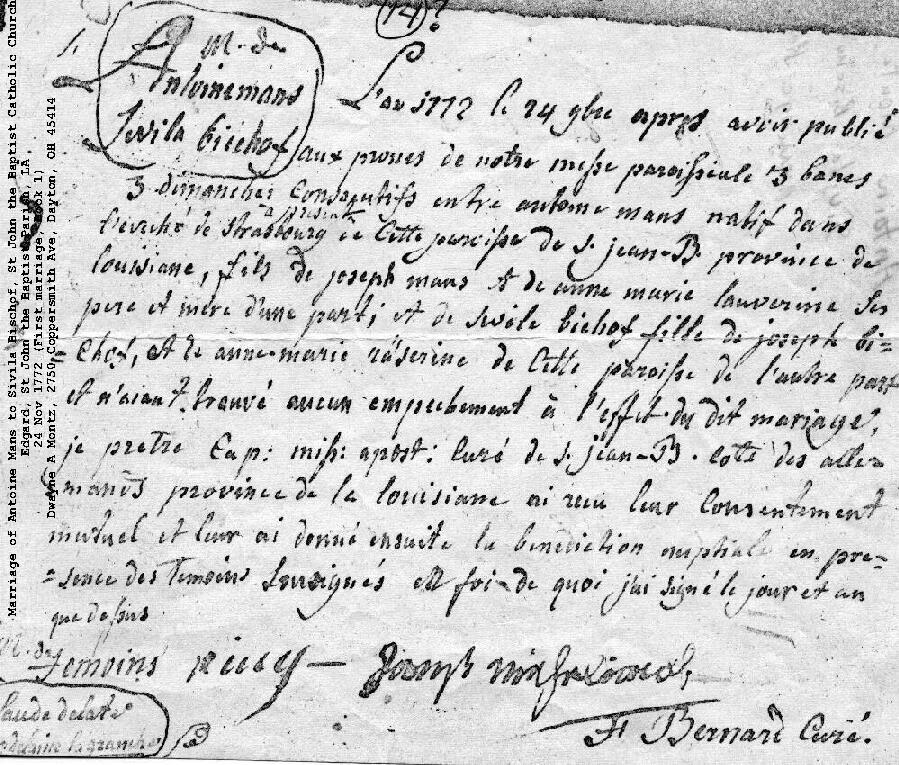 Marriage of Antoine Mans to Sivila Bischof, St John the Baptist Catholic Church
Edgard, St John the Baptist Parish, LA
24 Nov 1772 (First marriage, Book 1)
Dwayne A Montz, 2750 Coppersmith Ave, Dayton, OH 45414
(14)?
1.
M. de
Antoine mans
Sevila bischof
L'an 1772 le 24 9bre apres avoir publié
aux prones de notre messe paroissiale 3 bancs
3 dimanches Consecutifs entre antoine mans natif dans
l'eveché de Strasbourg à present de Cette paroisse de s. jean-B. province de
louisiane, fils de joseph mans & de anne marie lauverine ses
pere et mere d'une part, et de Sevile bichof fille de joseph bi=
=chof, et de anne-marie räserine de Cette paroisse de l'autre part
et n'aiant trouvé aucun empechement à l'effet du dit mariage,
je pretre Cap: miss: apost: Curé de s. jean-B. Cote des alle-
mands province de la louisiane ai recu leur Consentement
mutuel et leur ai donné ensuite la benediction nuptiale en pre-
=sence des Temoins Sousignés en foi de quoi j'ai signé le jour et an
que dessus
Temoins Joseph
F Bernard Curé.
M. de
Claude